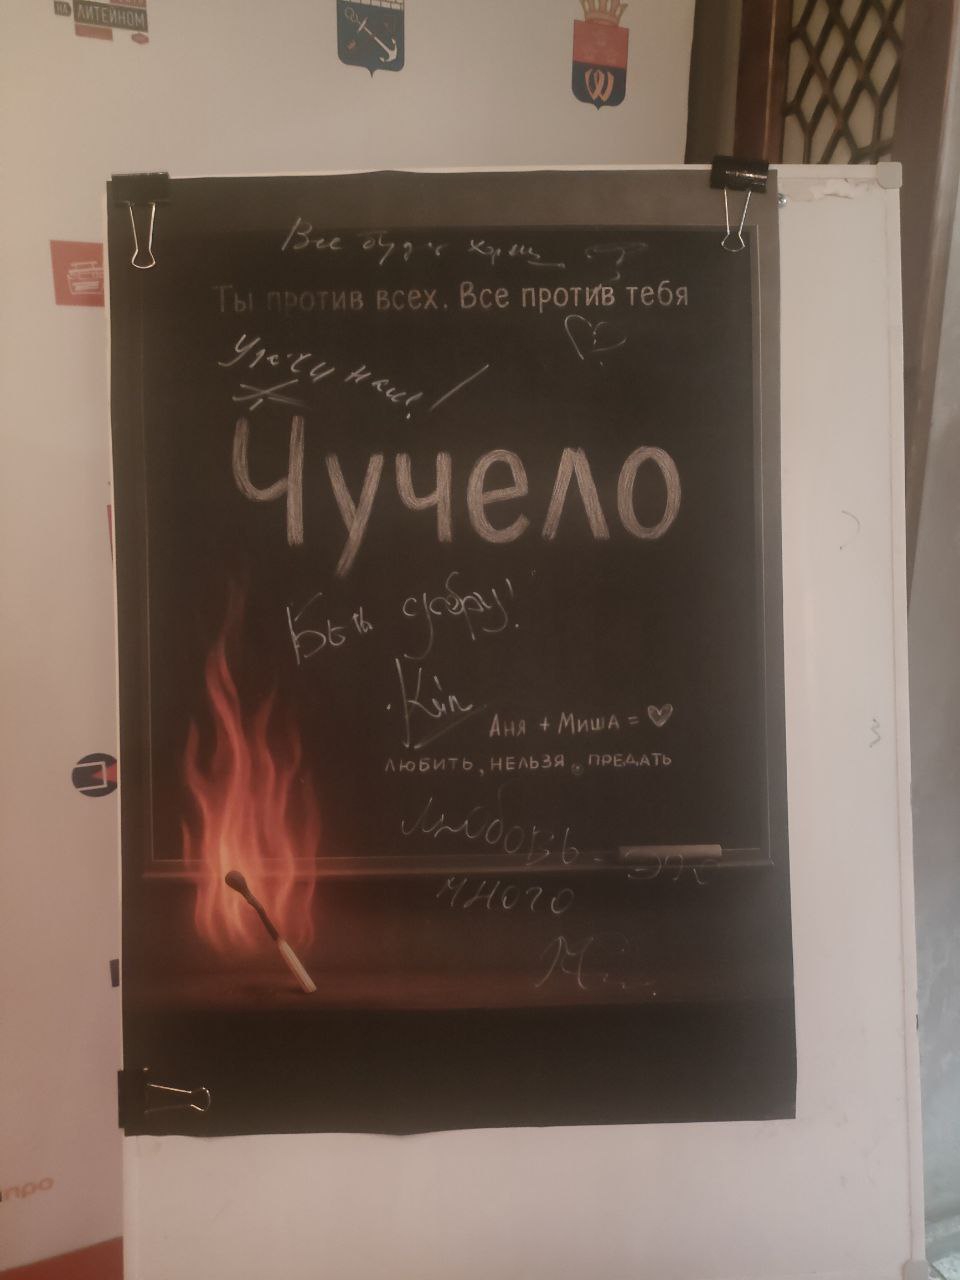 НА ЛИТЕЙНОМ
Все будет хорошо
Ты против всех. Все против тебя
Удачи нам!
Чучело
Быть добру!
Аня + Миша =
ЛЮБИТЬ, НЕЛЬЗЯ, ПРЕДАТЬ
Любовь - это
много
про